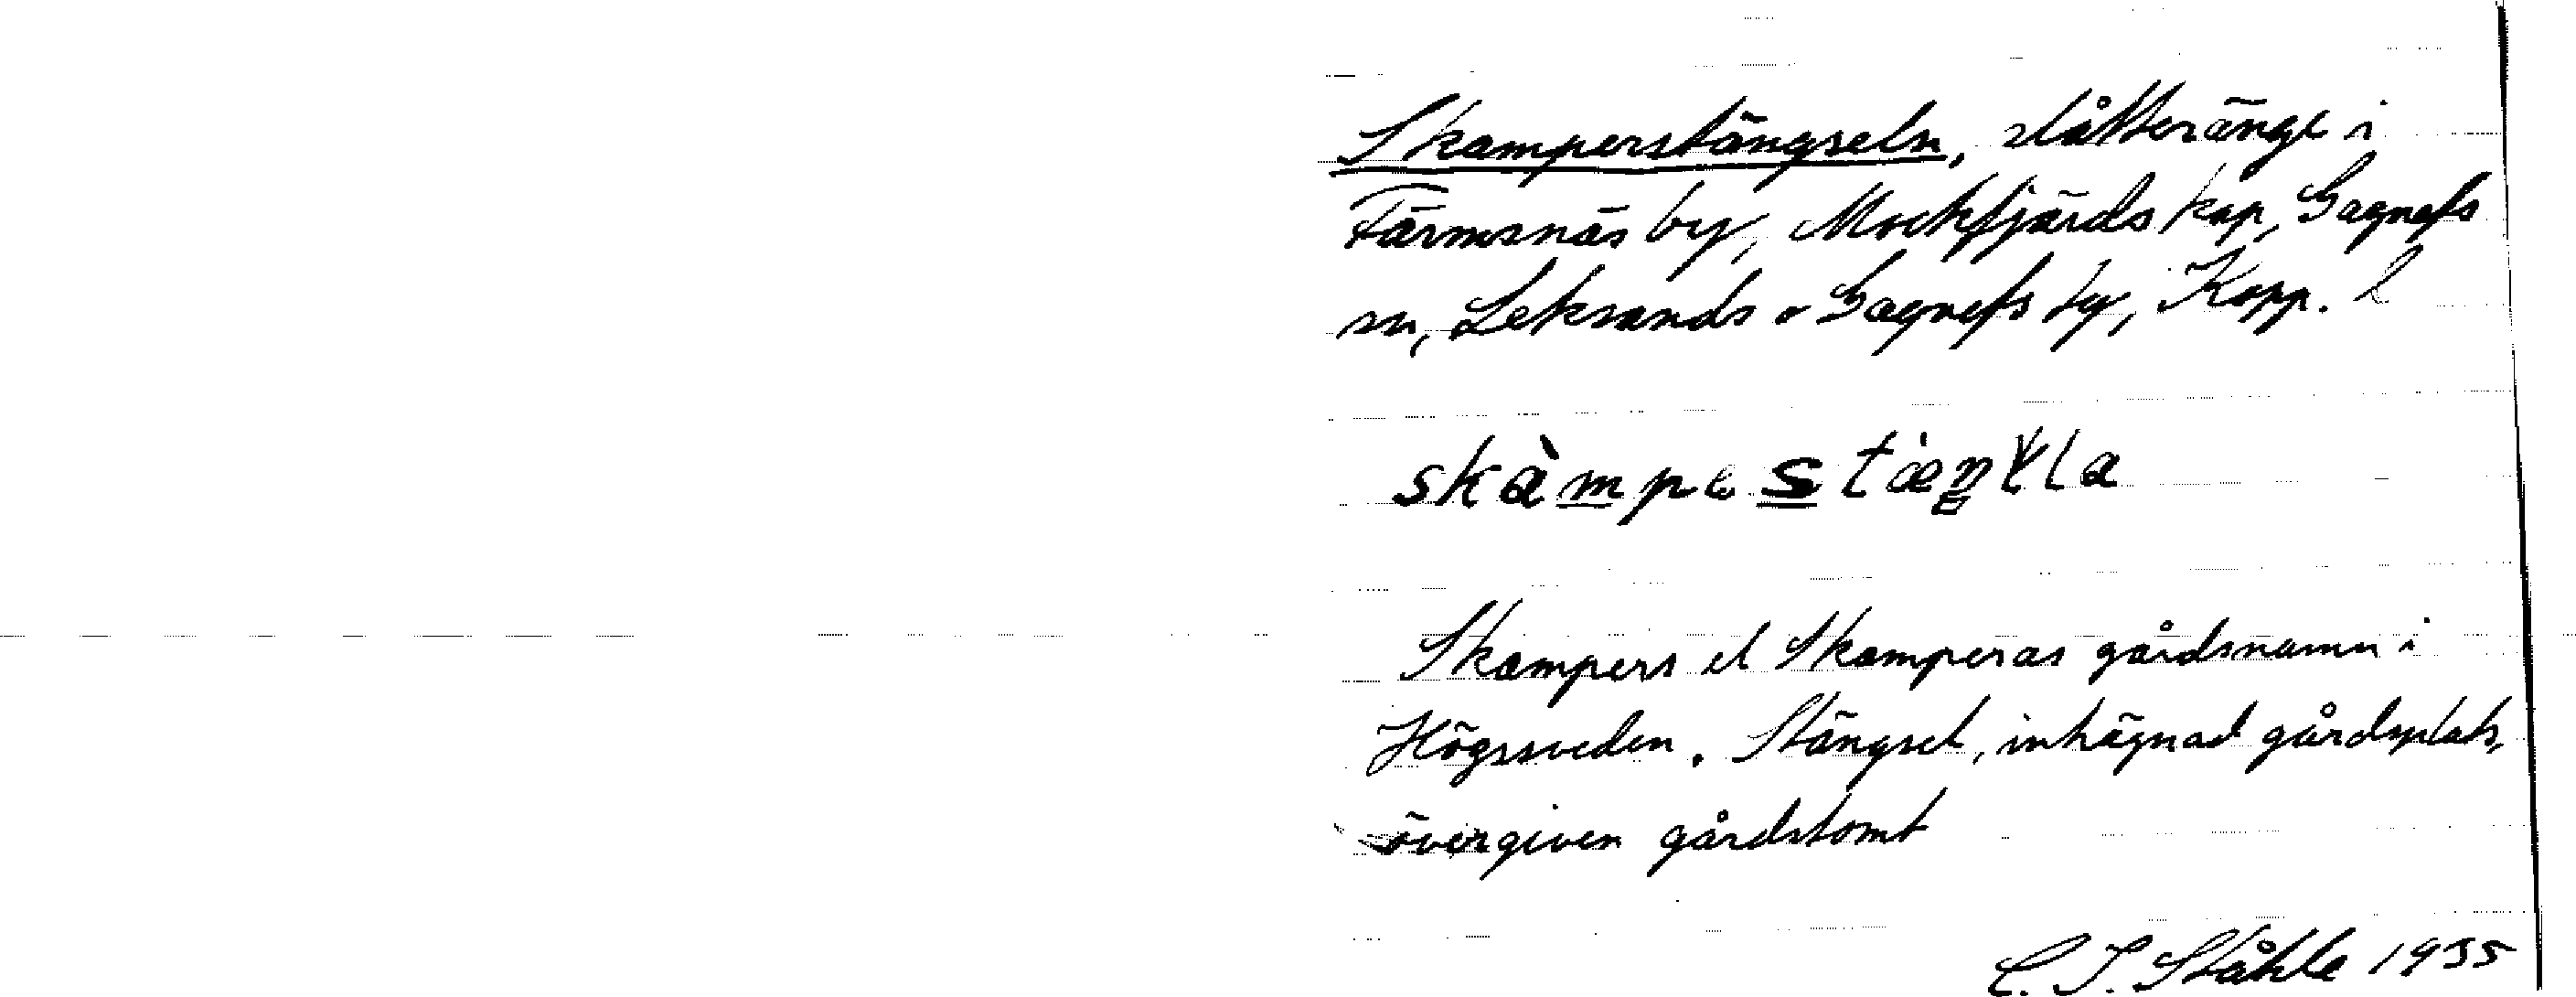 Skamperstängseln, slåtteränge i
Färmsnäs by, Mockfjärds kap, Gagnefs
sn, Leksands o Gagnefs tg, Kopp. l
skàmpe s tæŋʟla
Skampers el Skamperas gårdsnamn i
Högssveden. Stängsel, inhägnad gårdsplats,
övergiven gårdstomt
C. I. Ståhle 1935